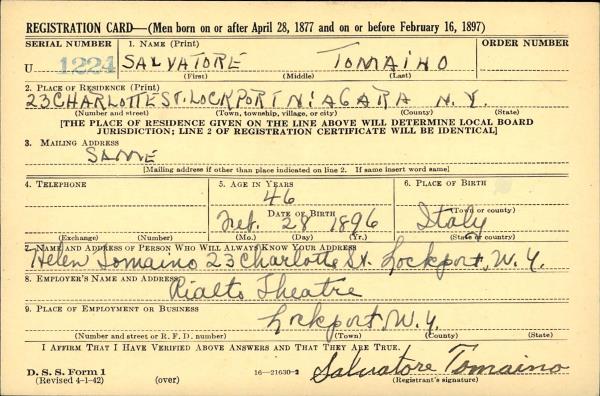 REGISTRATION CARD—(Men born on or after April 28, 1877 and on or before February 16, 1897)
SERIAL NUMBER 1. NAME (Print) ORDER NUMBER
U 1224 SALVATORE TOMAINO
(First) (Middle) (Last)
2. PLACE OF RESIDENCE (Print)
23 CHARLOTTE ST. LOCKPORT NIAGARA N.Y.
(Number and street) (Town, township, village, or city) (County) (State)
[THE PLACE OF RESIDENCE GIVEN ON THE LINE ABOVE WILL DETERMINE LOCAL BOARD
JURISDICTION; LINE 2 OF REGISTRATION CERTIFICATE WILL BE IDENTICAL]
3. MAILING ADDRESS
SAME
[Mailing address if other than place indicated on line 2. If same insert word same]
4. TELEPHONE 5. AGE IN YEARS 6. PLACE OF BIRTH
46
DATE OF BIRTH (Town or county)
Feb. 28 1896 Italy
(Exchange) (Number) (Mo.) (Day) (Yr.) (State or country)
7. NAME AND ADDRESS OF PERSON WHO WILL ALWAYS KNOW YOUR ADDRESS
Helen Tomaino 23 Charlotte St. Lockport, N.Y.
8. EMPLOYER'S NAME AND ADDRESS
Rialto Theatre
9. PLACE OF EMPLOYMENT OR BUSINESS
Lockport N.Y.
(Number and street or R. F. D. number) (Town) (County) (State)
I AFFIRM THAT I HAVE VERIFIED ABOVE ANSWERS AND THAT THEY ARE TRUE.
D. S. S. Form 1 Salvatore Tomaino
(Revised 4-1-42) (over) 16—21630-2 (Registrant's signature)